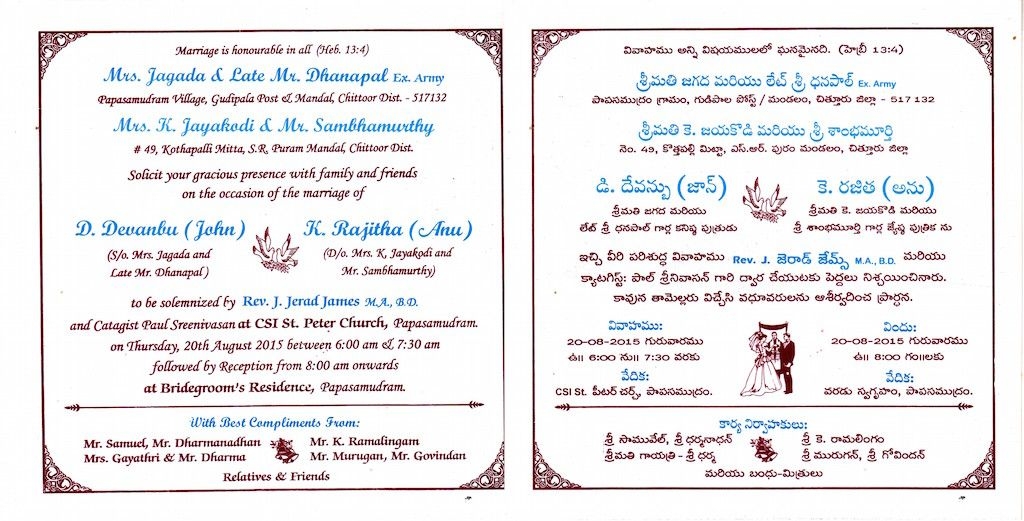 Marriage is honourable in all (Heb. 13:4)
Mrs. Jagada & Late Mr. Dhanapal Ex. Army
Papasamudram Village, Gudipala Post & Mandal, Chittoor Dist. - 517132
Mrs. K. Jayakodi & Mr. Sambhamurthy
# 49, Kothapalli Mitta, S.R. Puram Mandal, Chittoor Dist.
Solicit your gracious presence with family and friends
on the occasion of the marriage of
D. Devanbu (John)
(S/o. Mrs. Jagada and
Late Mr. Dhanapal)
K. Rajitha (Anu)
(D/o. Mrs. K, Jayakodi and
Mr. Sambhamurthy)
to be solemnized by Rev. J. Jerad James M.A., B.D.
and Catagist Paul Sreenivasan at CSI St. Peter Church, Papasamudram.
on Thursday, 20th August 2015 between 6:00 am & 7:30 am
followed by Reception from 8:00 am onwards
at Bridegroom's Residence, Papasamudram.
With Best Compliments From:
Mr. Samuel, Mr. Dharmanadhan
Mrs. Gayathri & Mr. Dharma
Mr. K. Ramalingam
Mr. Murugan, Mr. Govindan
Relatives & Friends
వివాహము అన్ని విషయములలో ఘనమైనది. (హెబ్రీ 13:4)
శ్రీమతి జగద మరియు లేట్ శ్రీ ధనపాల్ Ex. Army
పాపసముద్రం గ్రామం, గుడిపాల పోస్ట్ / మండలం, చిత్తూరు జిల్లా - 517 132
శ్రీమతి కె. జయకొడి మరియు శ్రీ శాంభమూర్తి
నెం. 49, కొత్తపల్లి మిట్టా, ఎస్.ఆర్. పురం మండలం, చిత్తూరు జిల్లా
డి. దేవన్బు (జాన్)
శ్రీమతి జగద మరియు
లేట్ శ్రీ ధనపాల్ గార్ల కనిష్ఠ పుత్రుడు
కె. రజిత (అను)
శ్రీమతి కె. జయకొడి మరియు
శ్రీ శాంభమూర్తి గార్ల జ్యేష్ఠ పుత్రిక ను
ఇచ్చి వీరి పరిశుద్ధ వివాహము Rev. J. జెరాడ్ జేమ్స్ M.A., B.D. మరియు
క్యాటగిస్ట్: పాల్ శ్రీనివాసన్ గారి ద్వార చేయుటకు పెద్దలు నిశ్చయించినారు.
కావున తామెల్లరు విచ్చేసి వధూవరులను ఆశీర్వదించ ప్రార్థన.
వివాహము:
20-08-2015 గురువారము
ఉ॥ 6:00 ను॥ 7:30 వరకు
వేదిక:
CSI St. పీటర్ చర్చ్, పాపసముద్రం.
విందు:
20-08-2015 గురువారము
ఉ॥ 8:00 గం॥లకు
వేదిక:
వరడు స్వగృహం, పాపసముద్రం.
కార్య నిర్వాహకులు:
శ్రీ సామువేల్, శ్రీ ధర్మనాధన్
శ్రీమతి గాయత్రి - శ్రీ ధర్మ
శ్రీ కె. రామలింగం
శ్రీ మురుగన్, శ్రీ గోవిందన్
మరియు బంధు-మిత్రులు